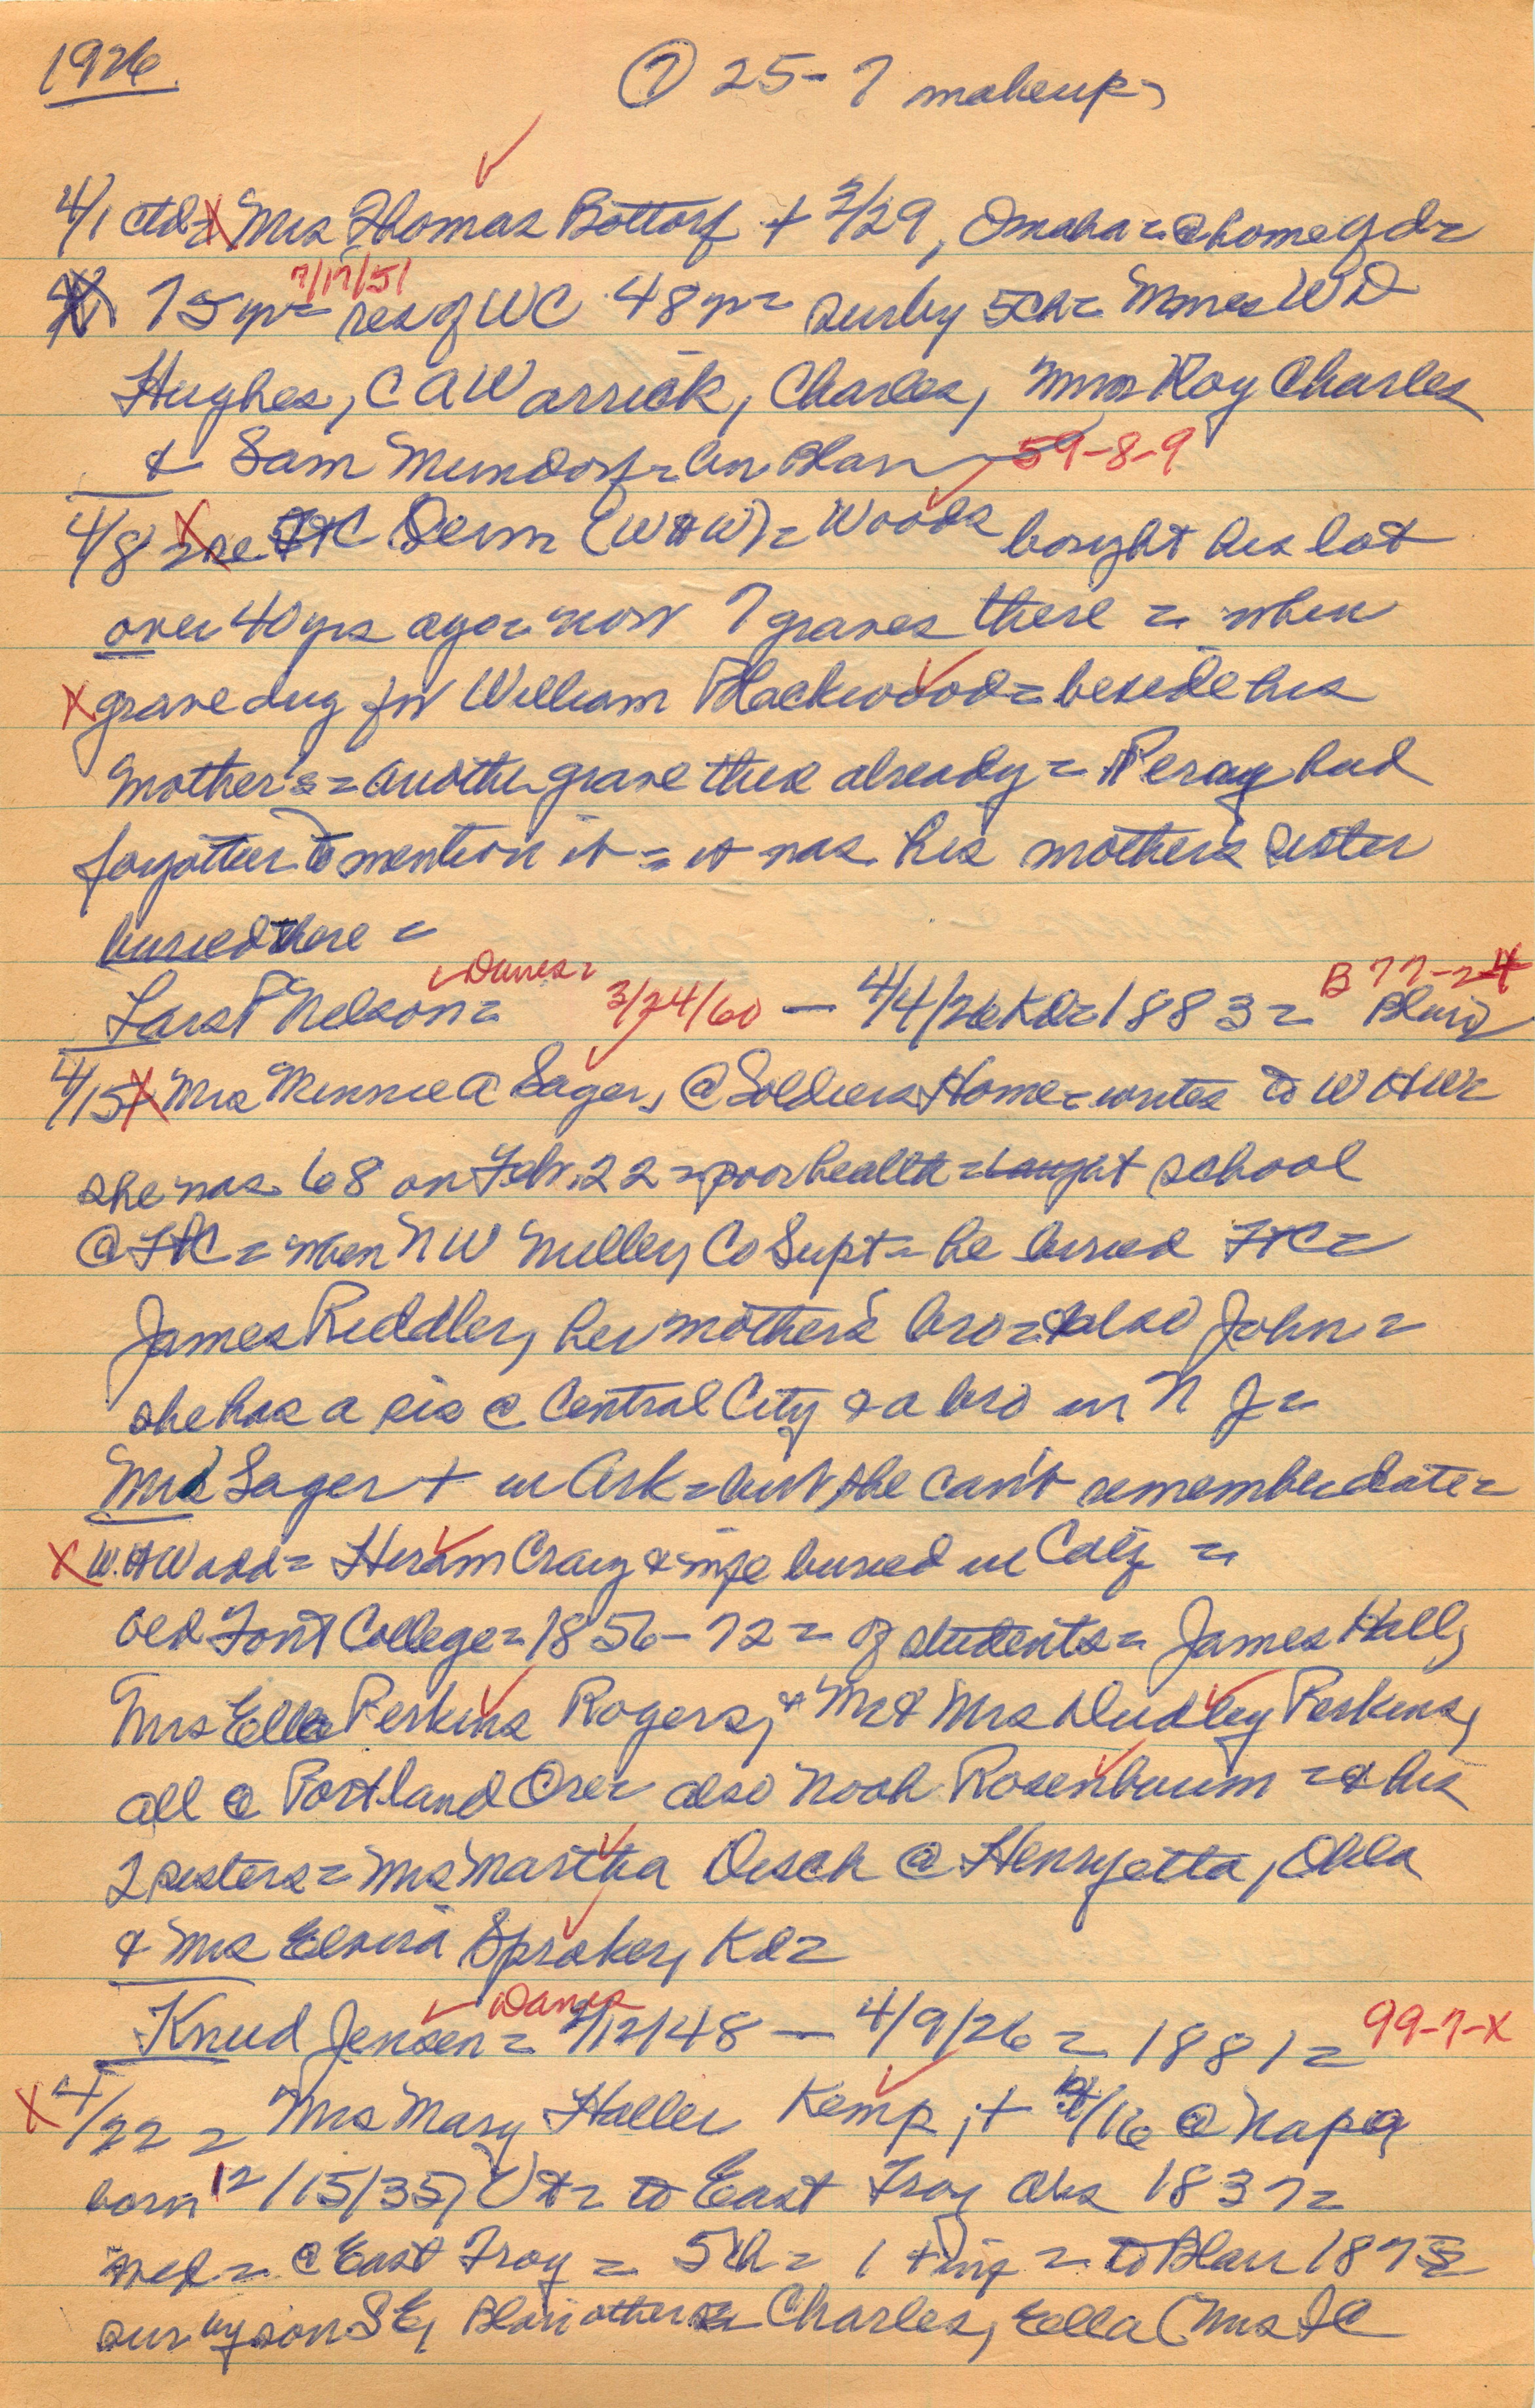 1926.
⑦ 25-7 makeup
4/1 ctd= X Mrs Thomas Bottorf + 3/29, Omaha = @ home of d=
7/17/51
75 yr= res of WC 48 yr= surby 5ch= Mmes WD
Hughes, C A Warrick, Charles, Mmm Roy Charles
& Sam Mundorf = an Blair 59-8-9
4/8 = X re FtC Dem (WHW) = Woods bought his lot
over 40 yrs ago = now 7 graves there = when
X grave dug for William Blackwood = beside his
mother's = another grave there already = Perry had
forgotten to mention it = it was his mother's sister
buried there =
Danes=
Lars P Nelson = 3/24/60 — 4/4/26 Kd= 1883 = Blair B 77-2-4
4/15 X Mrs Minnie A Sager, @ Soldiers Home = writes to WHW=
she was 68 on Feb. 22 = poor health = taught school
@ FtC = when NW Miller, Co Supt = he buried FtC=
James Riddler, her mother's bro = & also John =
she has a sis @ Central City & a bro in N J =
Mrs Sager + in Ark = but she can't remember date =
X W.H Wood = Hiram Craig & wife buried in Calif =
old Font College = 1856-72 = of students = James Hall,
Mrs Ella Perkins Rogers, & Mr & Mrs Dudley Perkins,
all @ Portland Ore = also Noah Rosenbaum = & his
2 sisters = Mrs Martha Desch @ Henryetta, Okla
& Mrs Elvira Spraker, Kd=
Danes
Knud Jensen = 2/12/48 — 4/9/26 = 1881 = 99-7-X
X 4/22 = Mrs Mary Haller Kemp, + 4/16 @ Napa
born 12/15/35, Vt = to East Troy Wis 1837 =
wed = @ East Troy = 5ch = 1 + inf = to Blair 1875
sur by son S E, Blair others = Charles, Ella (Mrs IC